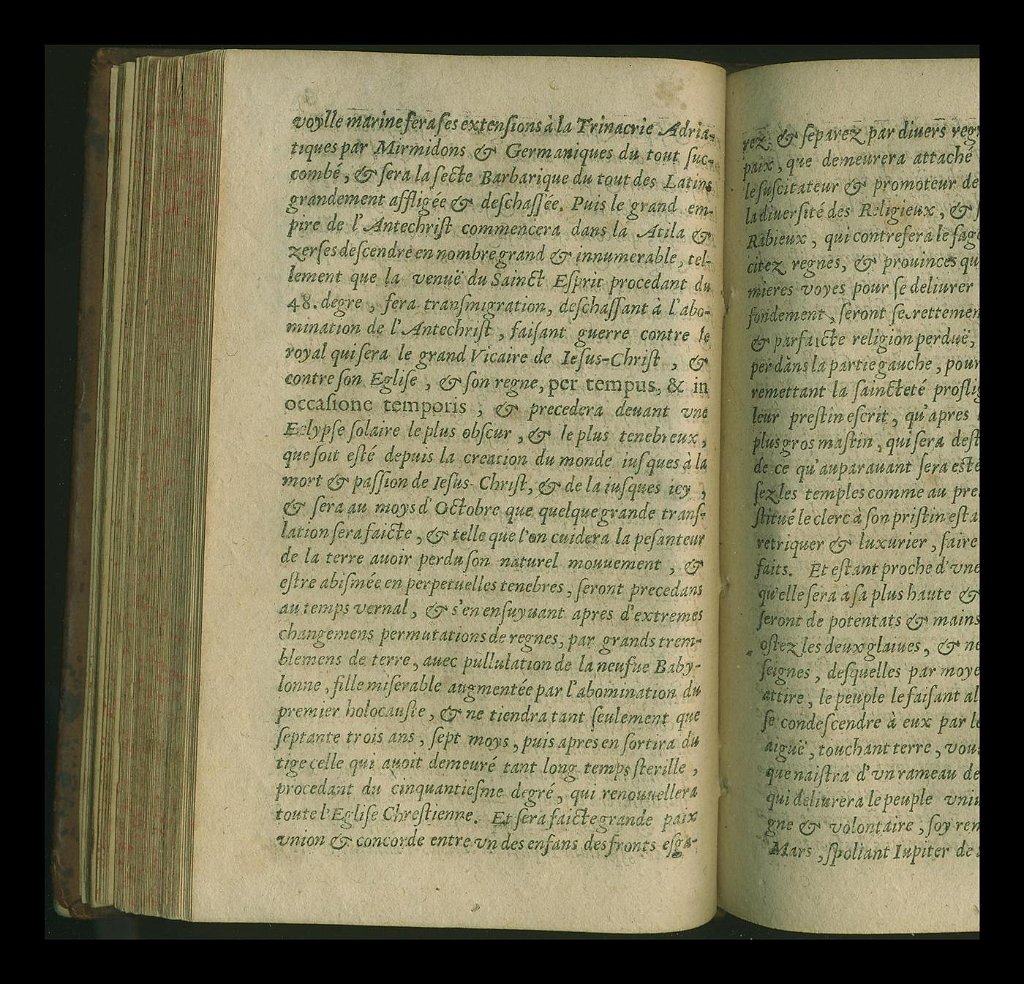 voylle marine fera ses extensions à la Trinacrie Adria-
tiques par Mirmidons & Germaniques du tout suc-
combé, & sera la secte Barbarique du tout des Latins
grandement affligée & deschassée. Puis le grand em-
pire de l'Antechrist commencera dans la Atila &
zerses descendre en nombre grand & innumerable, tel-
lement que la venuë du Sainct Esprit procedant du
48. degre, fera transmigration, deschassant à l'abo-
mination de l'Antechrist, faisant guerre contre le
royal qui sera le grand Vicaire de Iesus-Christ, &
contre son Eglise, & son regne, per tempus, & in
occasione temporis, & precedera deuant vne
Eclypse solaire le plus obscur, & le plus tenebreux,
que soit esté depuis la creation du monde iusques à la
mort & passion de Iesus-Christ, & de la iusques icy,
& sera au moys d'Octobre que quelque grande trans-
lation sera faicte, & telle que l'on cuidera la pesanteur
de la terre auoir perdu son naturel mouuement, &
estre abismée en perpetuelles tenebres, seront precedans
au temps vernal, & s'en ensuyuant apres d'extremes
changemens permutations de regnes, par grands trem-
blemens de terre, auec pullulation de la neufue Baby-
lonne, fille miserable augmentée par l'abomination du
premier holocauste, & ne tiendra tant seulement que
septante trois ans, sept moys, puis apres en sortira du
tige celle qui auoit demeuré tant long temps sterille,
procedant du cinquantiesme degré, qui renouuellera
toute l'Eglise Chrestienne. Et sera faicte grande paix
vnion & concorde entre vn des enfans des fronts esga-
rez, & separez par diuers reg
paix, que demeurera attaché
le suscitateur & promoteur de
la diuersité des Religieux, &
Rabieux, qui contrefera le sag
citez regnes, & prouinces qu
mieres voyes pour se deliurer
fondement, seront secrettemen
& parfaicte religion perduë,
per dans la partie gauche, pour
remettant la saincteté proflig
leur prestin escrit, qu'apres
plus gros mastin, qui sera dest
de ce qu'auparauant sera esté
sez les temples comme au pre
stitué le clerc à son pristin esta
retriquer & luxurier, faire
faits. Et estant proche d'vne
qu'elle sera a sa plus haute &
seront de potentats & mains
ostez les deux glaiues, & ne
seignes, desquelles par moye
attire, le peuple le faisant al
se condescendre à eux par le
aiguë, touchant terre, vou
que naistra d'vn rameau de
qui deliurera le peuple vniu
gne & volontaire, soy ren
Mars, spoliant Iupiter de